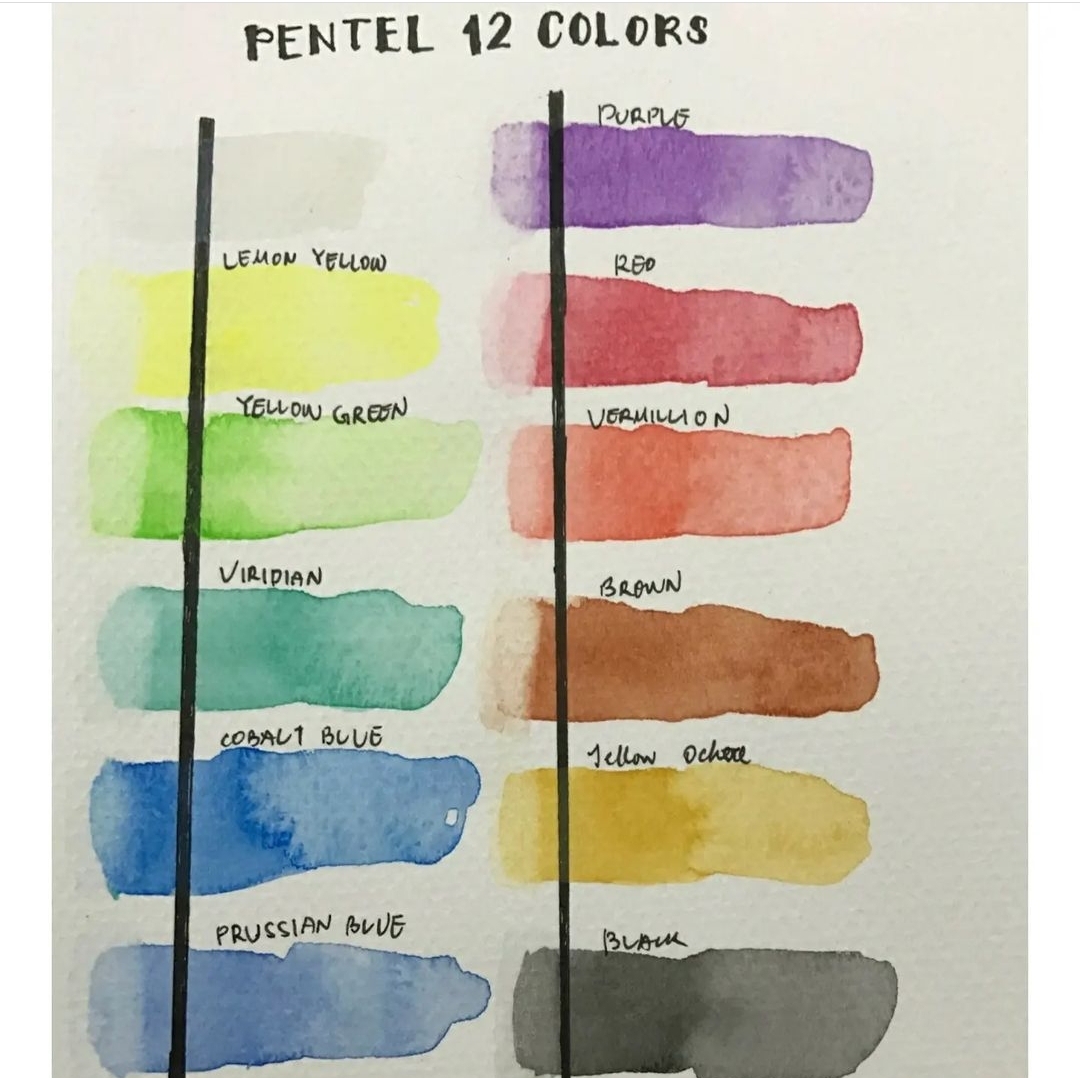 PENTEL 12 COLORS
LEMON YELLOW
YELLOW GREEN
VIRIDIAN
COBALT BLUE
PRUSSIAN BLUE
PURPLE
RED
VERMILLION
BROWN
Yellow Ochere
BLACK